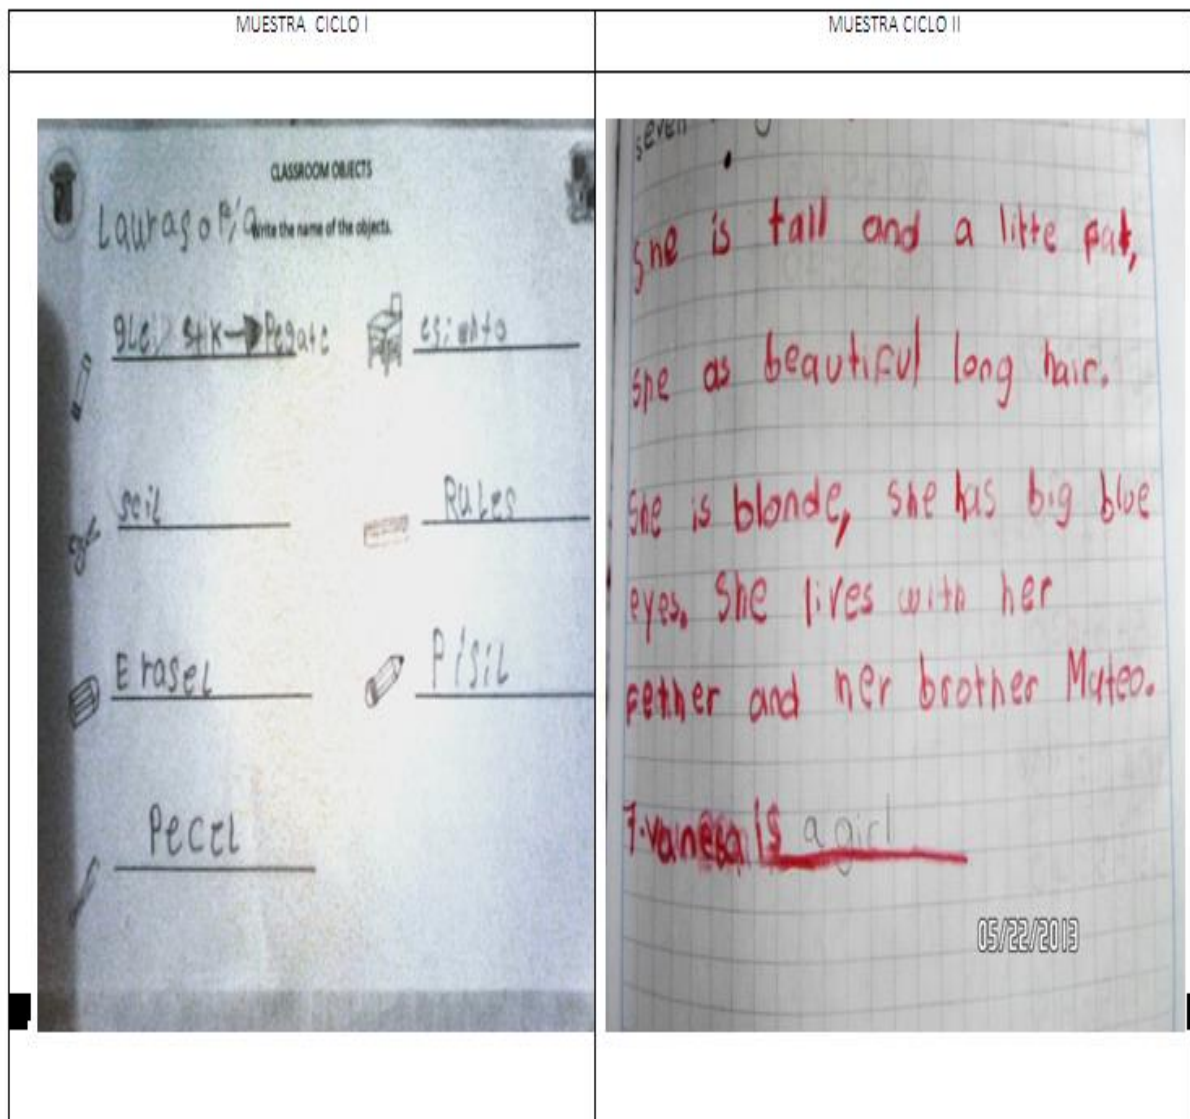 MUESTRA CICLO I
MUESTRA CICLO II
CLASSROOM OBJECTS
Laurasofia
Write the name of the objects.
glei stik → Pegate
esiento
scil
Rules
Erasel
Pisil
Pecel
seven
She is tall and a litte fat,
she as beautiful long hair.
She is blonde, she has big blue
eyes. She lives with her
fether and her brother Mateo.
7. vanesa is a girl
05/22/2013